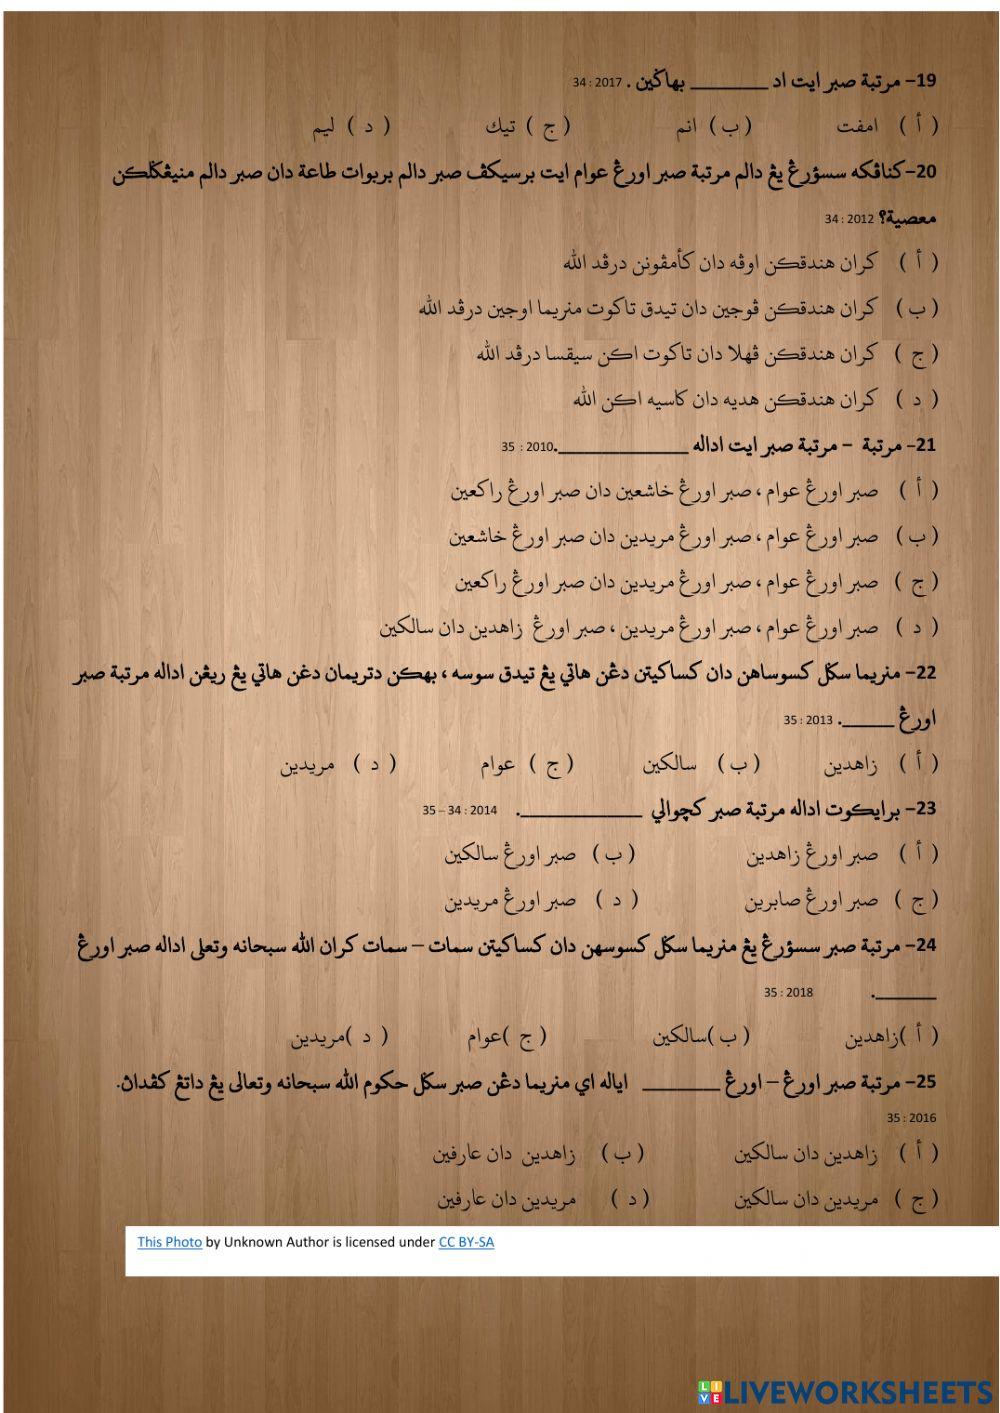 19- مرتبة صبر ايت اد ________ بهاڬين . 2017 : 34
( أ ) امفت ( ب ) انم ( ج ) تيك ( د ) ليم
20-كناڤكه سسؤرڠ يڠ دالم مرتبة صبر اورڠ عوام ايت برسيكڤ صبر دالم بربوات طاعة دان صبر دالم منيڠݢلكن
معصية؟ 2012 : 34
( أ ) كران هندقكن اوڤه دان كأمڤونن درڤد الله
( ب ) كران هندقكن ڤوجين دان تيدق تاكوت منريما اوجين درڤد الله
( ج ) كران هندقكن ڤهلا دان تاكوت اكن سيقسا درڤد الله
( د ) كران هندقكن هديه دان كاسيه اكن الله
21- مرتبة - مرتبة صبر ايت اداله ______________.2010 : 35
( أ ) صبر اورڠ عوام ، صبر اورڠ خاشعين دان صبر اورڠ راكعين
( ب ) صبر اورڠ عوام ، صبر اورڠ مريدين دان صبر اورڠ خاشعين
( ج ) صبر اورڠ عوام ، صبر اورڠ مريدين دان صبر اورڠ راكعين
( د ) صبر اورڠ عوام ، صبر اورڠ مريدين ، صبر اورڠ زاهدين دان سالكين
22- منريما سݢل كسوساهن دان كساكيتن دڠن هاتي يڠ تيدق سوسه ، بهكن دتريمان دغن هاتي يڠ ريڠن اداله مرتبة صبر
اورڠ ______. 2013 : 35
( أ ) زاهدين ( ب ) سالكين ( ج ) عوام ( د ) مريدين
23- برايكوت اداله مرتبة صبر كچوالي _____________. 2014 : 34 – 35
( أ ) صبر اورڠ زاهدين ( ب ) صبر اورڠ سالكين
( ج ) صبر اورڠ صابرين ( د ) صبر اورڠ مريدين
24- مرتبة صبر سسؤرڠ يڠ منريما سݢل كسوسهن دان كساكيتن سمات – سمات كران الله سبحانه وتعلى اداله صبر اورڠ
_______. 2018 : 35
( أ )زاهدين ( ب )سالكين ( ج )عوام ( د )مريدين
25- مرتبة صبر اورڠ – اورڠ ________ اياله اي منريما دڠن صبر سݢل حكوم الله سبحانه وتعالى يڠ داتڠ كڤدان.
2016 : 35
( أ ) زاهدين دان سالكين ( ب ) زاهدين دان عارفين
( ج ) مريدين دان سالكين ( د ) مريدين دان عارفين
This Photo by Unknown Author is licensed under CC BY-SA
LIVE LIVEWORKSHEETS